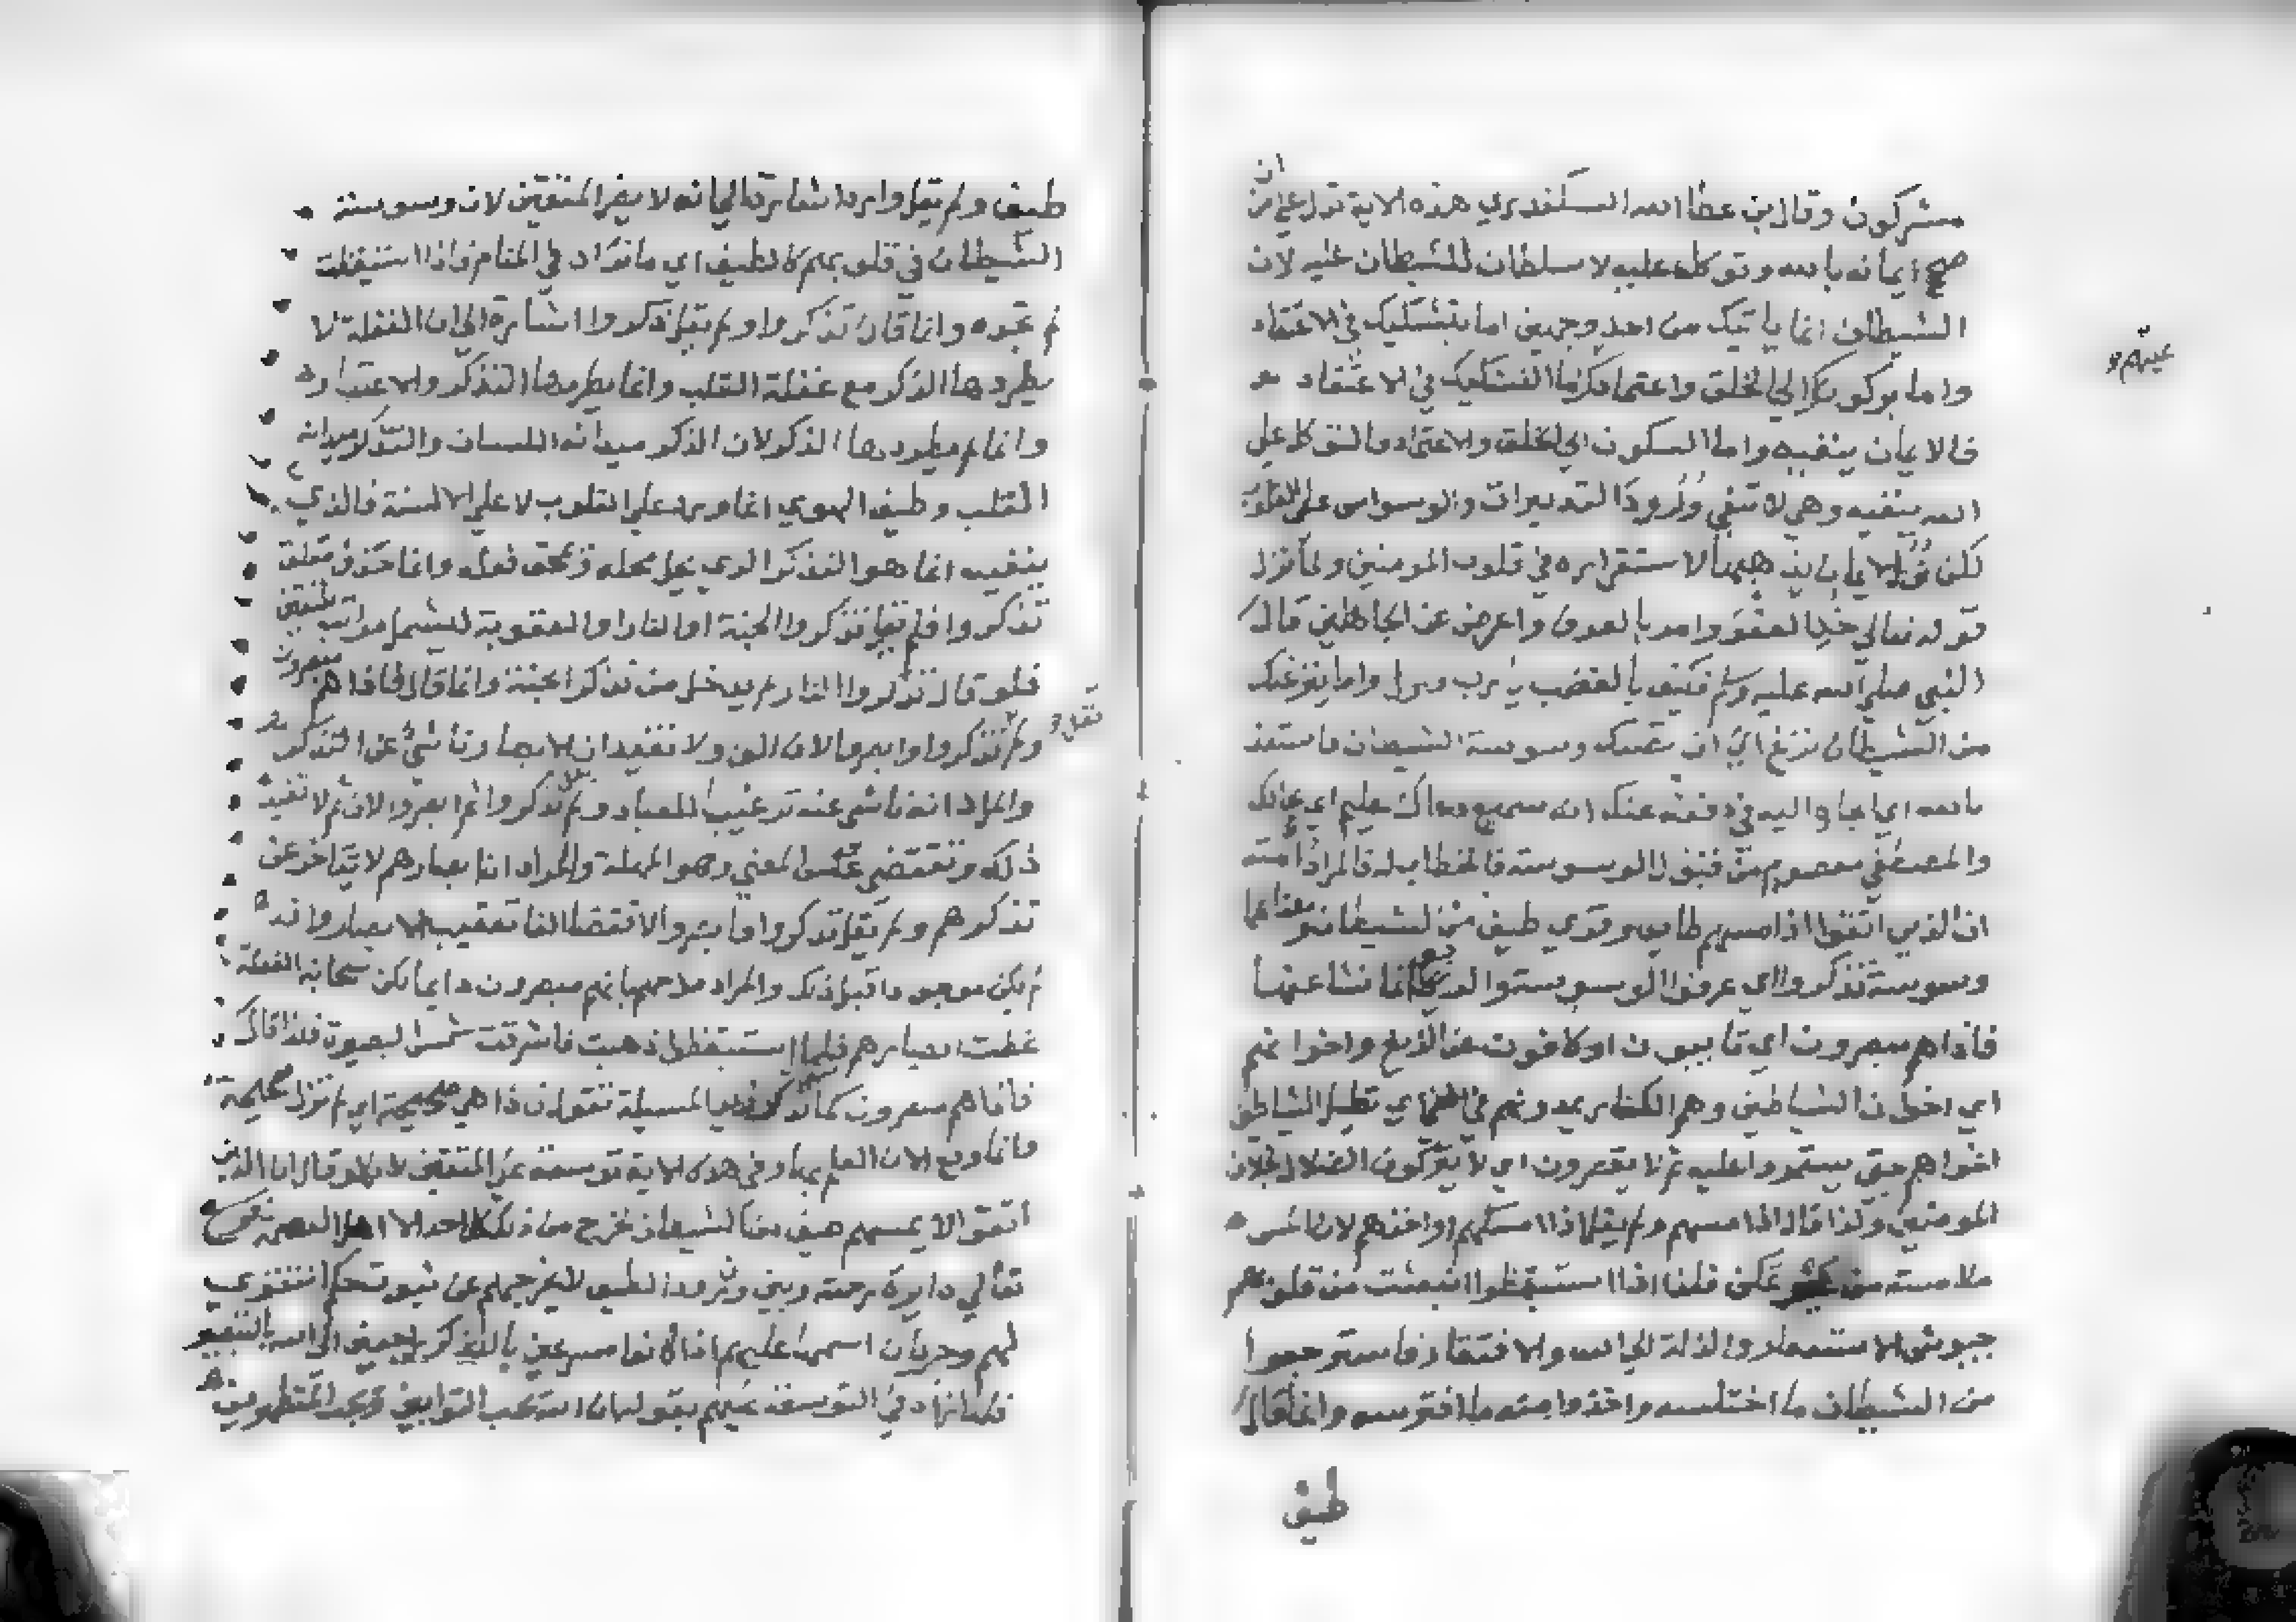 مشركون وقال بن عطا الله السكندري هذه الاية تدل علي ان من
صح ايمانه بالله وتوكله عليه لا سلطان للشيطان عليه لان
الشيطان انما ياتيك من احد وجهين اما بتشكيك في الاعتقاد
واما بركون الي الخلق واعتماد فاما التشكيك في الاعتقاد
فالايمان ينفيه واما السكون الي الخلق والاعتماد فالتوكل علي
الله ينفيه وهي لا تنفي ورود التدبيرات والوسواس علي القلوب
لكن نور الايمان يذهبها لاستقراره في قلوب المومنين ولما نزل
قوله تعالي خذ العفو وامر بالعرف واعرض عن الجاهلين قال
النبي صلي الله عليه وسلم فكيف بالغضب يا رب ونزل واما ينزغنك
من الشيطان نزغ اي ان تمسك وسوسة الشيطان فاستعذ
بالله اي الجا اليه في دفعه عنك انه سميع دعاك عليم اي بحالك
والمصطفي معصوم من قبول الوسوسة فالخطاب له والمراد امته
ان الذين اتقوا اذا مسهم طايف وقري طيف من الشيطان
وسوسة تذكروا اي عرفوا الوسوسة والذي انما نشا عنها
فاذا هم مبصرون اي تايبون او كافون عن الذنب واخوانهم
اي اخوان الشياطين وهم الكفار يمدونهم في الغي اي تطيل الشياطين
اغواهم حتي يستمروا عليه ثم لا يقصرون اي لا يتركون الضلال بخلاف
المومنين ولذا قال اذا مسهم ولم يقل اذا امسكهم او اخذهم لان المس
ملامسة من غير تمكن فلذا اذا استيقظوا انبعثت من قلوبهم
جيوش الاستغفار والذلة الي الله والافتقار فاسترجعوا
من الشيطان ما اختلسه واخذوا منه ما افترسه وانما قال
طيف
عينهم
طيف ولم يقل وارد اشارة الي انه لا يضر المتقين لان وسوسة
الشيطان في قلوبهم كالطيف اي ما تراه في المنام فاذا استيقظت
لم تجده وانما قال تذكروا ولم يقل ذكروا اشارة الي ان الغفلة لا
يطردها الذكر مع غفلة القلب وانما يطردها التذكر والاعتبار
وانما لم يطردها الذكر لان الذكر ميدانه اللسان والتذكر ميدانه
القلب وطيف الهوي انما ورد علي القلوب لا علي الالسنة فالذي
ينفيه انما هو التذكر الذي يحل محله ويمحق فعله وانما حذف متعلق
تذكروا فلم يقل تذكروا الجنة او النار او العقوبة ليشمل مراتب المتقين
فلو قال تذكروا النار لم يدخل من تذكر الجنة وانما قال فاذا هم مبصرون
ولم يقل تذكروا وابصروا لان الواو لا تفيد ان الابصار ناشئ عن التذكر
والمراد انه ناشي عنه ترغيبا للعباد ولم يقل تذكروا ثم ابصروا لان ثم لا تفيد
ذلك وتقتضي عكس المعني وهو المهلة والمراد ان ابصارهم لا يتاخر عن
تذكرهم ولم يقل تذكروا فابصروا لاقتضا الفا تعقيب الابصار وانه
لم يكن موجودا قبل ذلك والمراد مدحهم بانهم مبصرون دايما لكن سحابة الغفلة
غطت ابصارهم فلما استيقظوا ذهبت فاشرقت شمس البصيرة فلذا قال
فاذا هم مبصرون كما تذكروا المسيلة تقول فاذا هي صحيحة اي لم تزل صحيحة
وانما وقع الان العلم بها وفي هذه الاية توسعة علي المتقين لانه لو قال ان الذين
اتقوا لا يمسهم طيف من الشيطان لخرج من ذلك كل احد الا اهل العصمة فوسع
تعالي دايرة رحمته وبين ورود الطيف لا يخرجهم عن ثبوت حكم التقوي
لهم وجريان اسمها عليهم اذا كانوا مسرعين بالتذكر راجعين الي الله بالتبصر
فكما زاد في التوسعة عليهم بقوله ان الله يحب التوابين ويحب المتطهرين